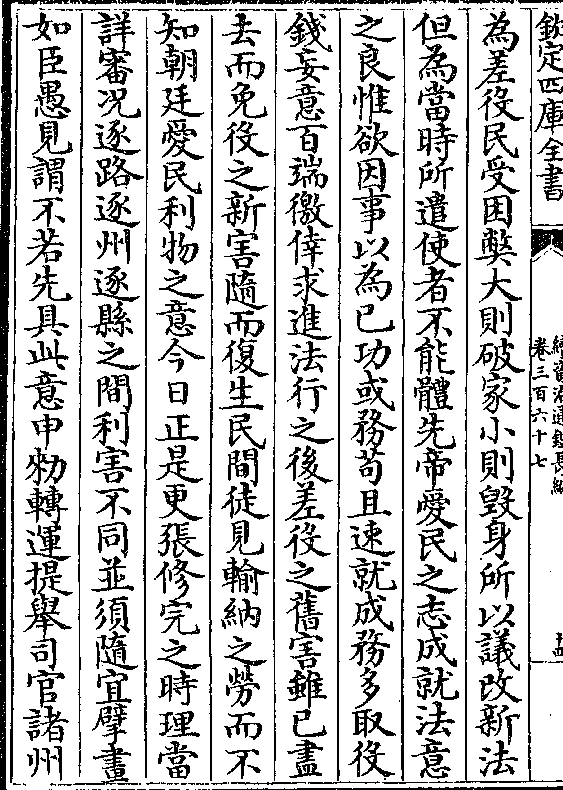 欽定四庫全書
續資治通鑑長編
卷三百六十七
為差役民受困弊大則破家小則毀身所以議改新法
但為當時所遣使者不能體先帝愛民之志成就法意
之良惟欲因事以為己功或務苟且速就成務多取役
錢妄意百端徼倖求進法行之後差役之舊害雖已盡
去而免役之新害隨而復生民間徒見輸納之勞而不
知朝廷愛民利物之意今日正是更張修完之時理當
詳審况逐路逐州逐縣之間利害不同並須隨宜擘畫
如臣愚見謂不若先具此意申勑轉運提舉司官諸州